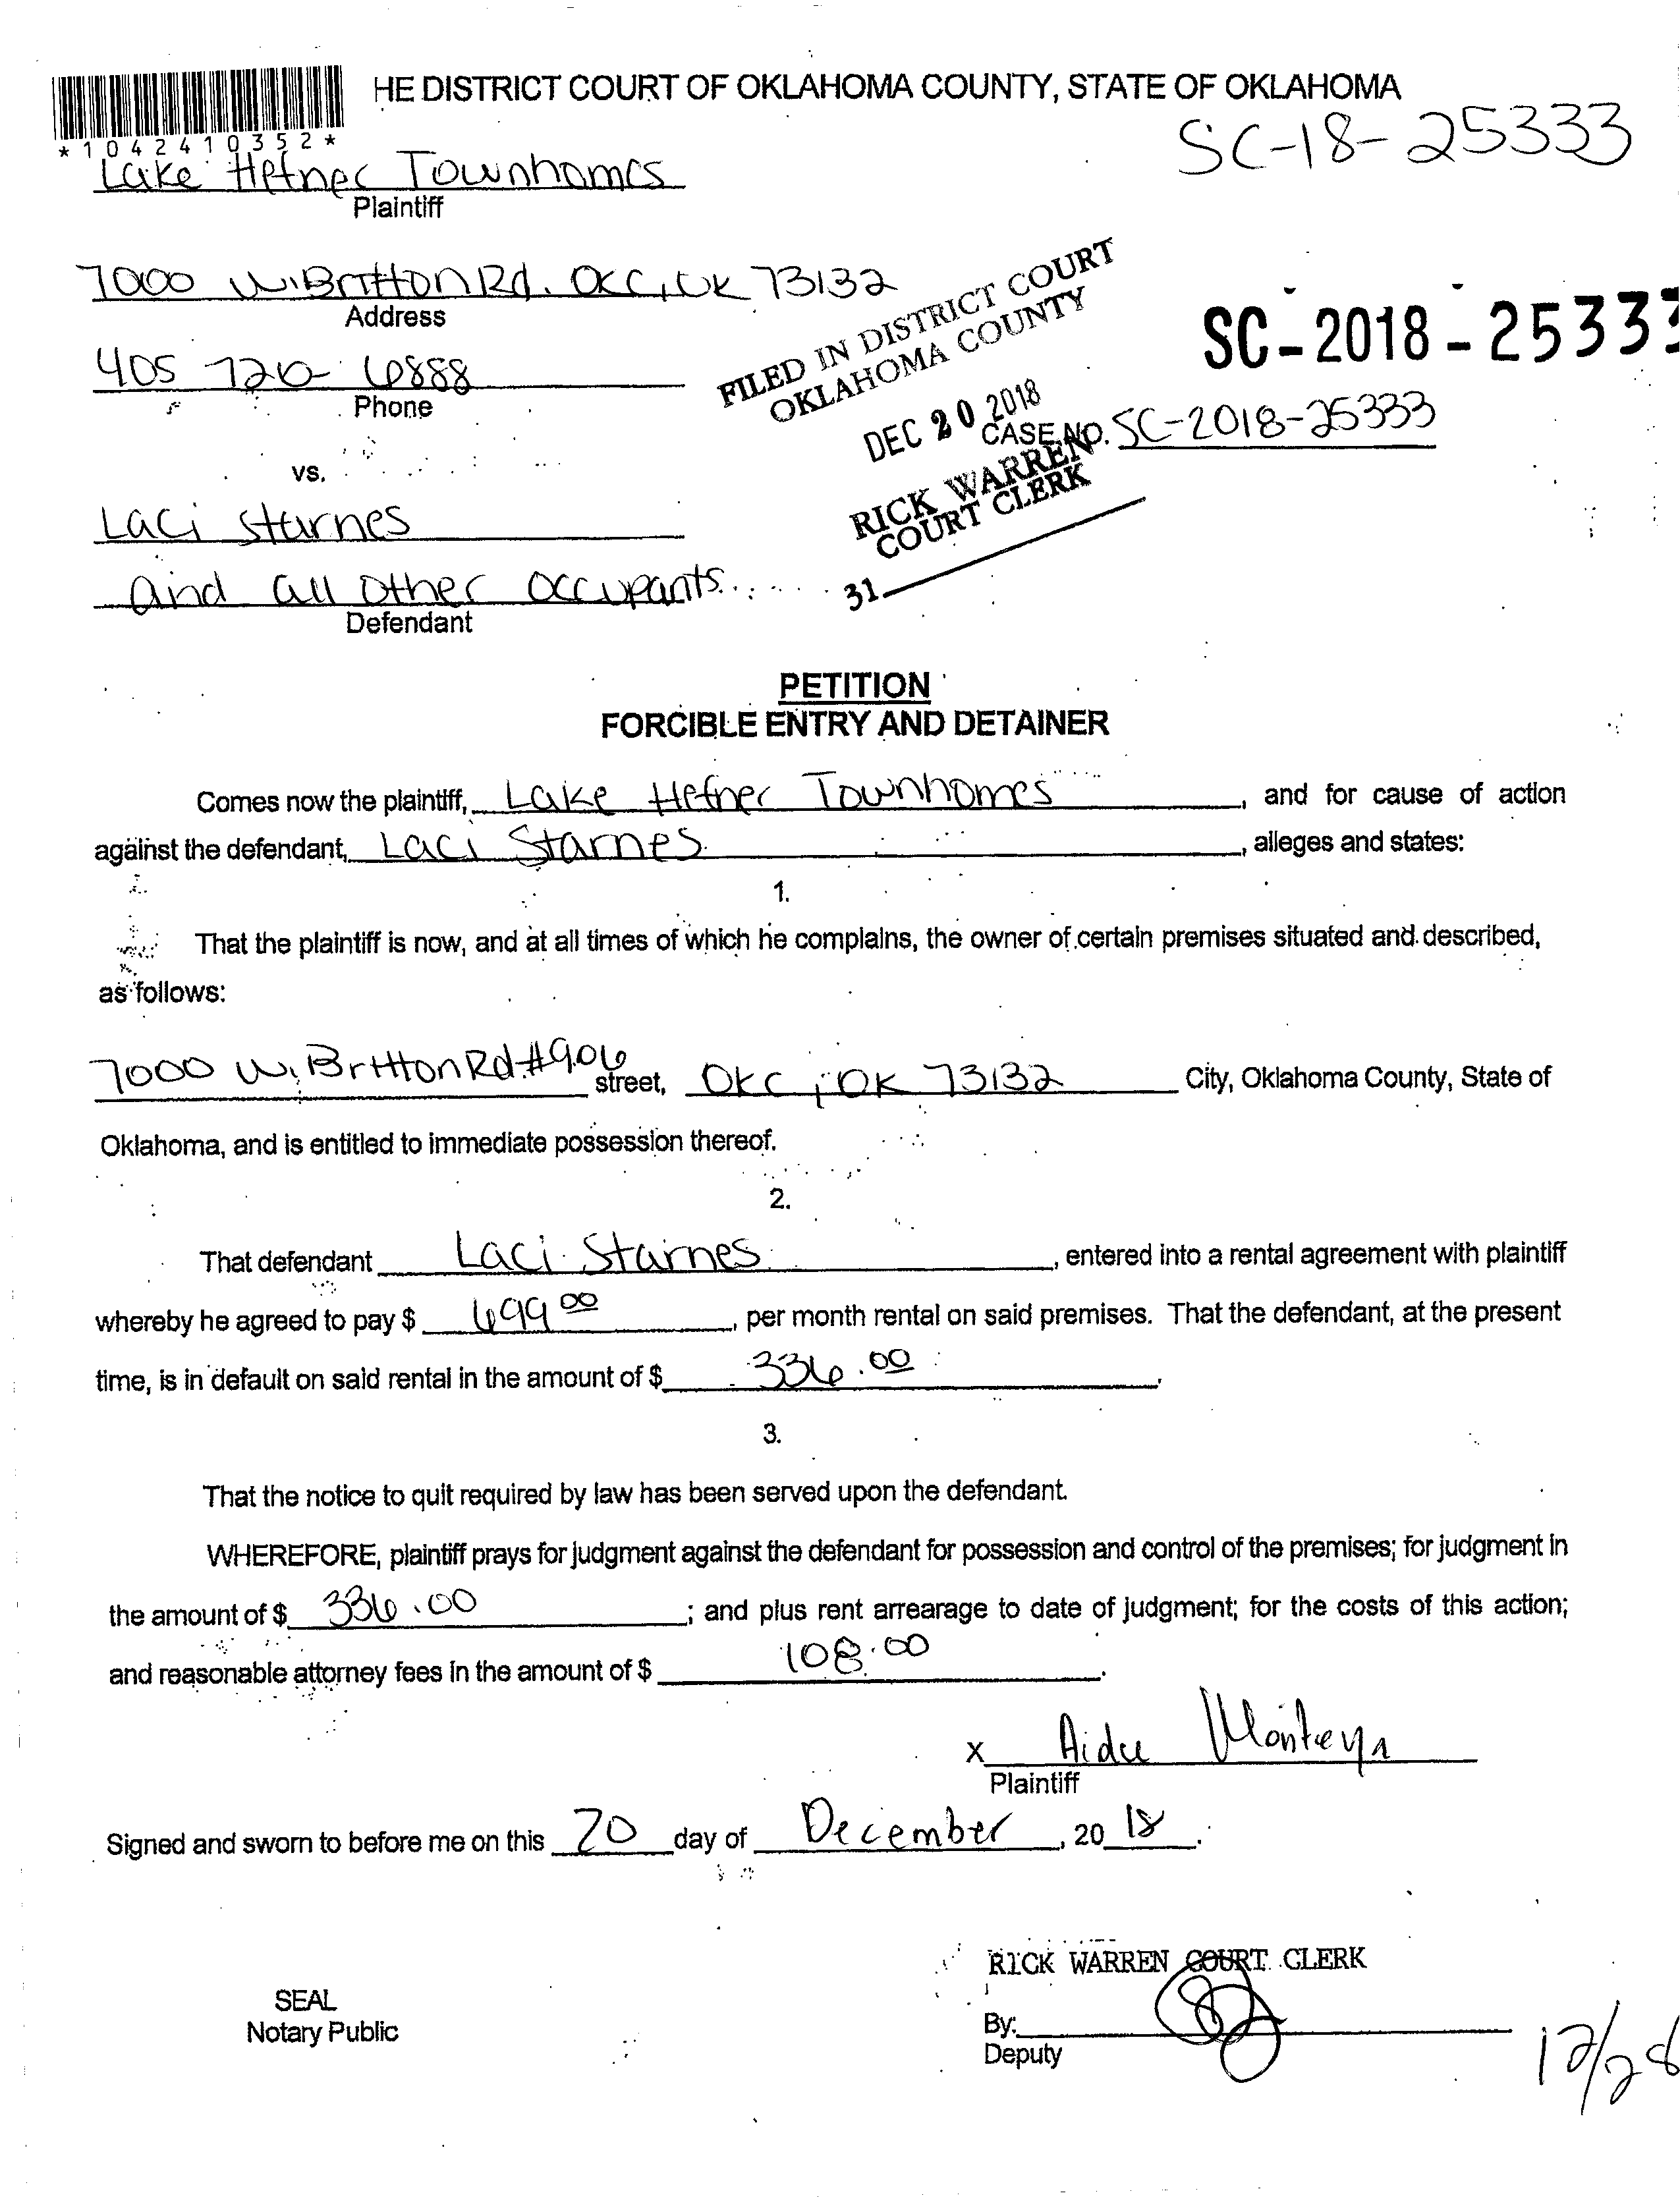 HE DISTRICT COURT OF OKLAHOMA COUNTY, STATE OF OKLAHOMA
*1042410352*
SC-18-25333
Lake Hefner Townhomes
Plaintiff
7000 W. Britton Rd. OKC, OK 73132
Address
FILED IN DISTRICT COURT
OKLAHOMA COUNTY
SC-2018-25333
405 720-6888
Phone
DEC 20 2018
CASE NO. SC-2018-25333
RICK WARREN
COURT CLERK
31
vs.
Laci Starnes
and all other occupants
Defendant
PETITION
FORCIBLE ENTRY AND DETAINER
Comes now the plaintiff, Lake Hefner Townhomes, and for cause of action
against the defendant, Laci Starnes, alleges and states:
1.
That the plaintiff is now, and at all times of which he complains, the owner of certain premises situated and described,
as follows:
7000 W. Britton Rd. #906 street, OKC, OK 73132 City, Oklahoma County, State of
Oklahoma, and is entitled to immediate possession thereof.
2.
That defendant Laci Starnes, entered into a rental agreement with plaintiff
whereby he agreed to pay $ 699 00, per month rental on said premises. That the defendant, at the present
time, is in default on said rental in the amount of $ 336.00.
3.
That the notice to quit required by law has been served upon the defendant.
WHEREFORE, plaintiff prays for judgment against the defendant for possession and control of the premises; for judgment in
the amount of $ 336.00; and plus rent arrearage to date of judgment; for the costs of this action;
and reasonable attorney fees in the amount of $ 108.00.
x Aidee Monteya
Plaintiff
Signed and sworn to before me on this 20 day of December, 2018.
RICK WARREN COURT CLERK
SEAL
Notary Public
By:
Deputy
12/28